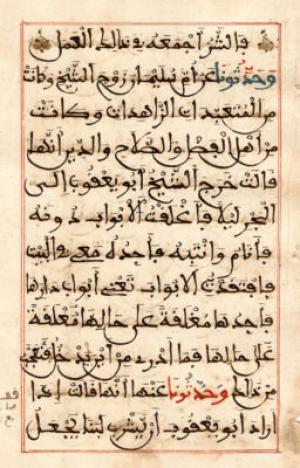 فالشر أجمعه في ذلك العمل
وحدثونا عن أم سليمان زوج الشيخ وكانت
من المتعبدات الزاهدات وكانت
من أهل الفضل والصلاح والدين أنها
قالت خرج الشيخ أبو يعقوب إلى
البحر ليلة فأغلقت الأبواب دونه
فأنام وانتبه فأجده معي في البيت
فافتقدت الأبواب تعني أبواب دارها
فأجدها مغلقة على حالها مغلقة
على حالها فما أدري من أين يدخل
من ذلك وحدثونا عنها أنها قالت إذا
أراد أبو يعقوب أن يشرب لبنا يجعل